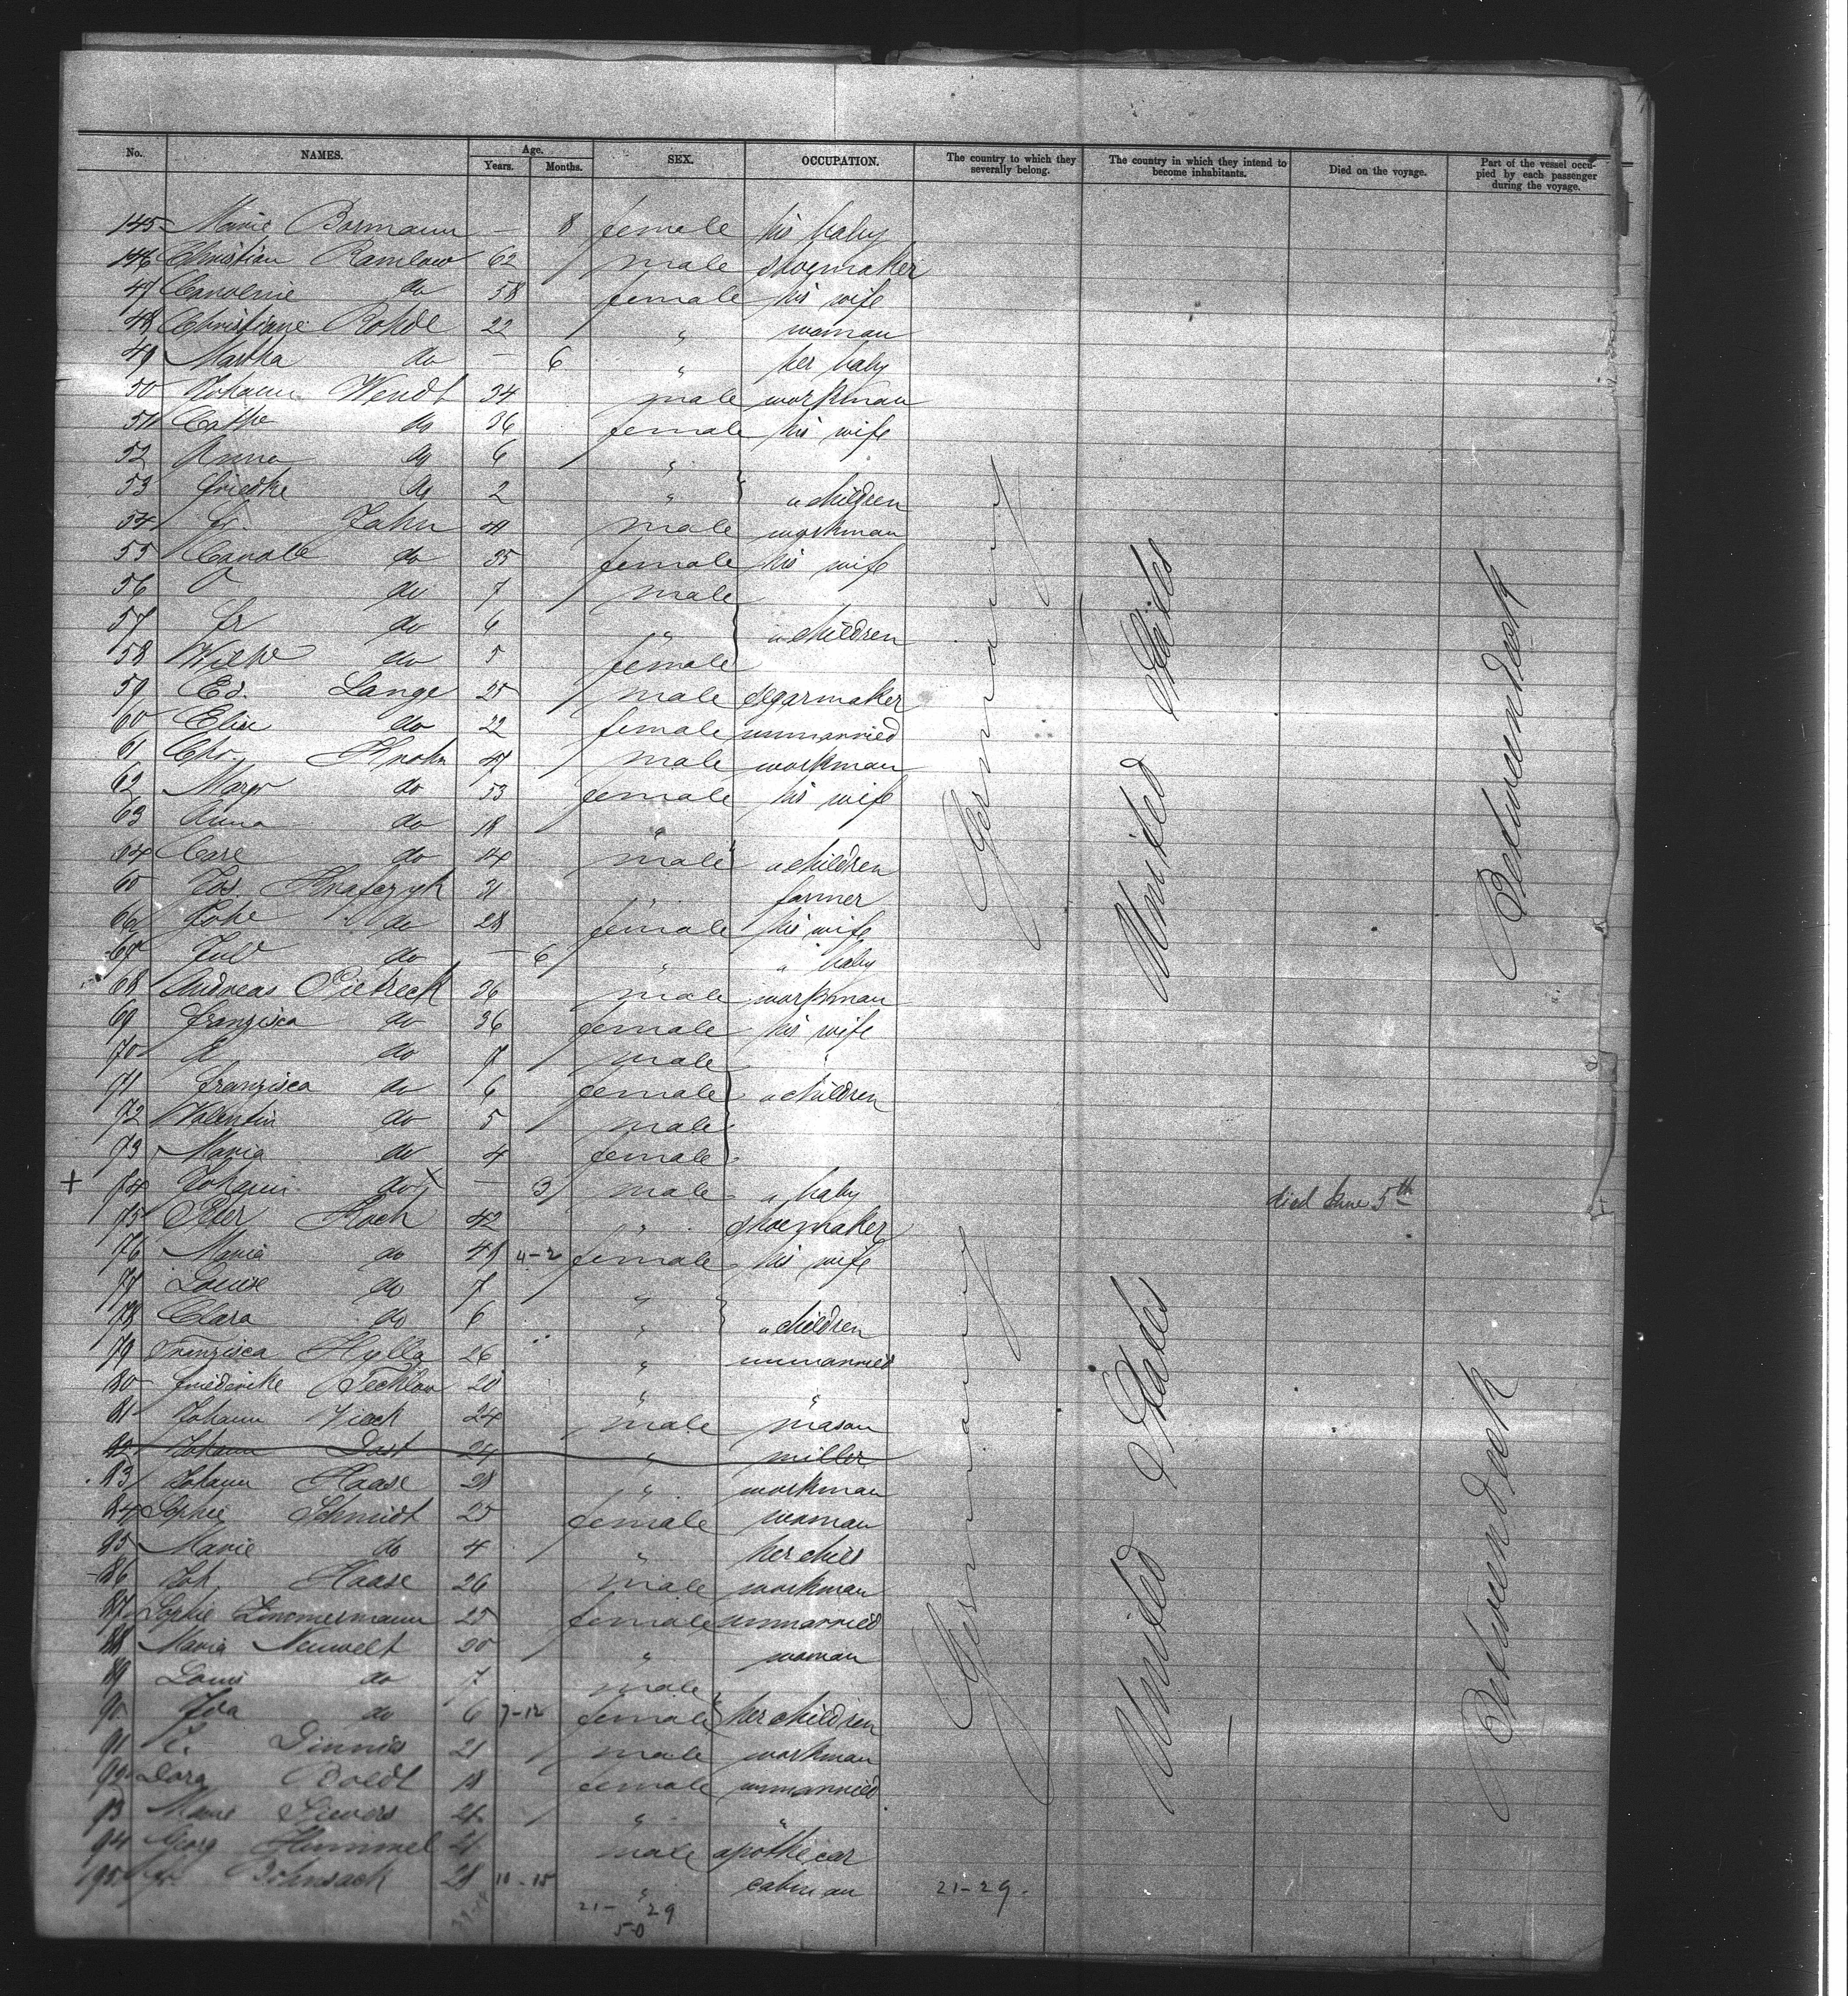 No. NAMES. Age. Years. Months. SEX. OCCUPATION. The country to which they severally belong. The country in which they intend to become inhabitants. Died on the voyage. Part of the vessel occupied by each passenger during the voyage.
145 Marie Bormann — 8 female his baby
146 Christian Ramlow 62 male shoemaker
47 Caroline do 58 female his wife
48 Christiane Rohde 22 " woman
49 Martha do — 6 " her baby
50 Johann Wendt 34 male workman
51 Cathe do 36 female his wife
52 Anna do 6 "
53 Friedke do 2 " " children
54 Fr. Jahn male workman
55 do 35 female his wife
56 do 7 male
57 Fr do 6 " " children
58 Wilhe do 5 female
59 Ed. Lange 25 male segarmaker
60 Elise do 22 female unmarried
61 Chr. 47 male workman
62 Margr do 53 female his wife
63 Anna do 18 "
64 Carl do 14 male " children
65 Jos 31 " farmer
66 Johe do 28 female his wife
67 do — 6 " " baby
68 Andreas Pietreck 36 male workman
69 Franzisca do 36 female his wife
70 do male
71 Franzisca do 6 female " children
72 Valentin do 5 male
73 Maria do 4 female
+ 74 Johann do x — 3 male " baby died June 5th
75 Peter Koch 42 " shoemaker
76 Maria do 4-2 female his wife
77 Louise do 7 "
78 Clara do 6 " " children
79 Franzisca Hylla 26 " unmarried
80 Friederike Techlow 20 " "
81 Johann Vieck 24 male mason
82 Johann Dast 24 " miller
83 Johann Haase 28 " workman
84 Sophie Schmidt 25 female woman
85 Marie do 4 " her child
86 Joh. Haase 26 male workman
87 Sophie Zimmermann 25 female unmarried
88 Maria Neuwelt 30 " woman
89 Louis do 7 male
90 Ida do 6 7-12 female her children
91 Dinnies 21 male workman
92 Dora Boldt 18 female unmarried
93 Marie Sievers 24 " "
94 Georg Hummel 21 male apothecar
195 Fr Bohnsack 28 10-15 " cabman 21-29.
21-29
50
Germany
United States
Betweendeck
Germany
United States
Betweendeck